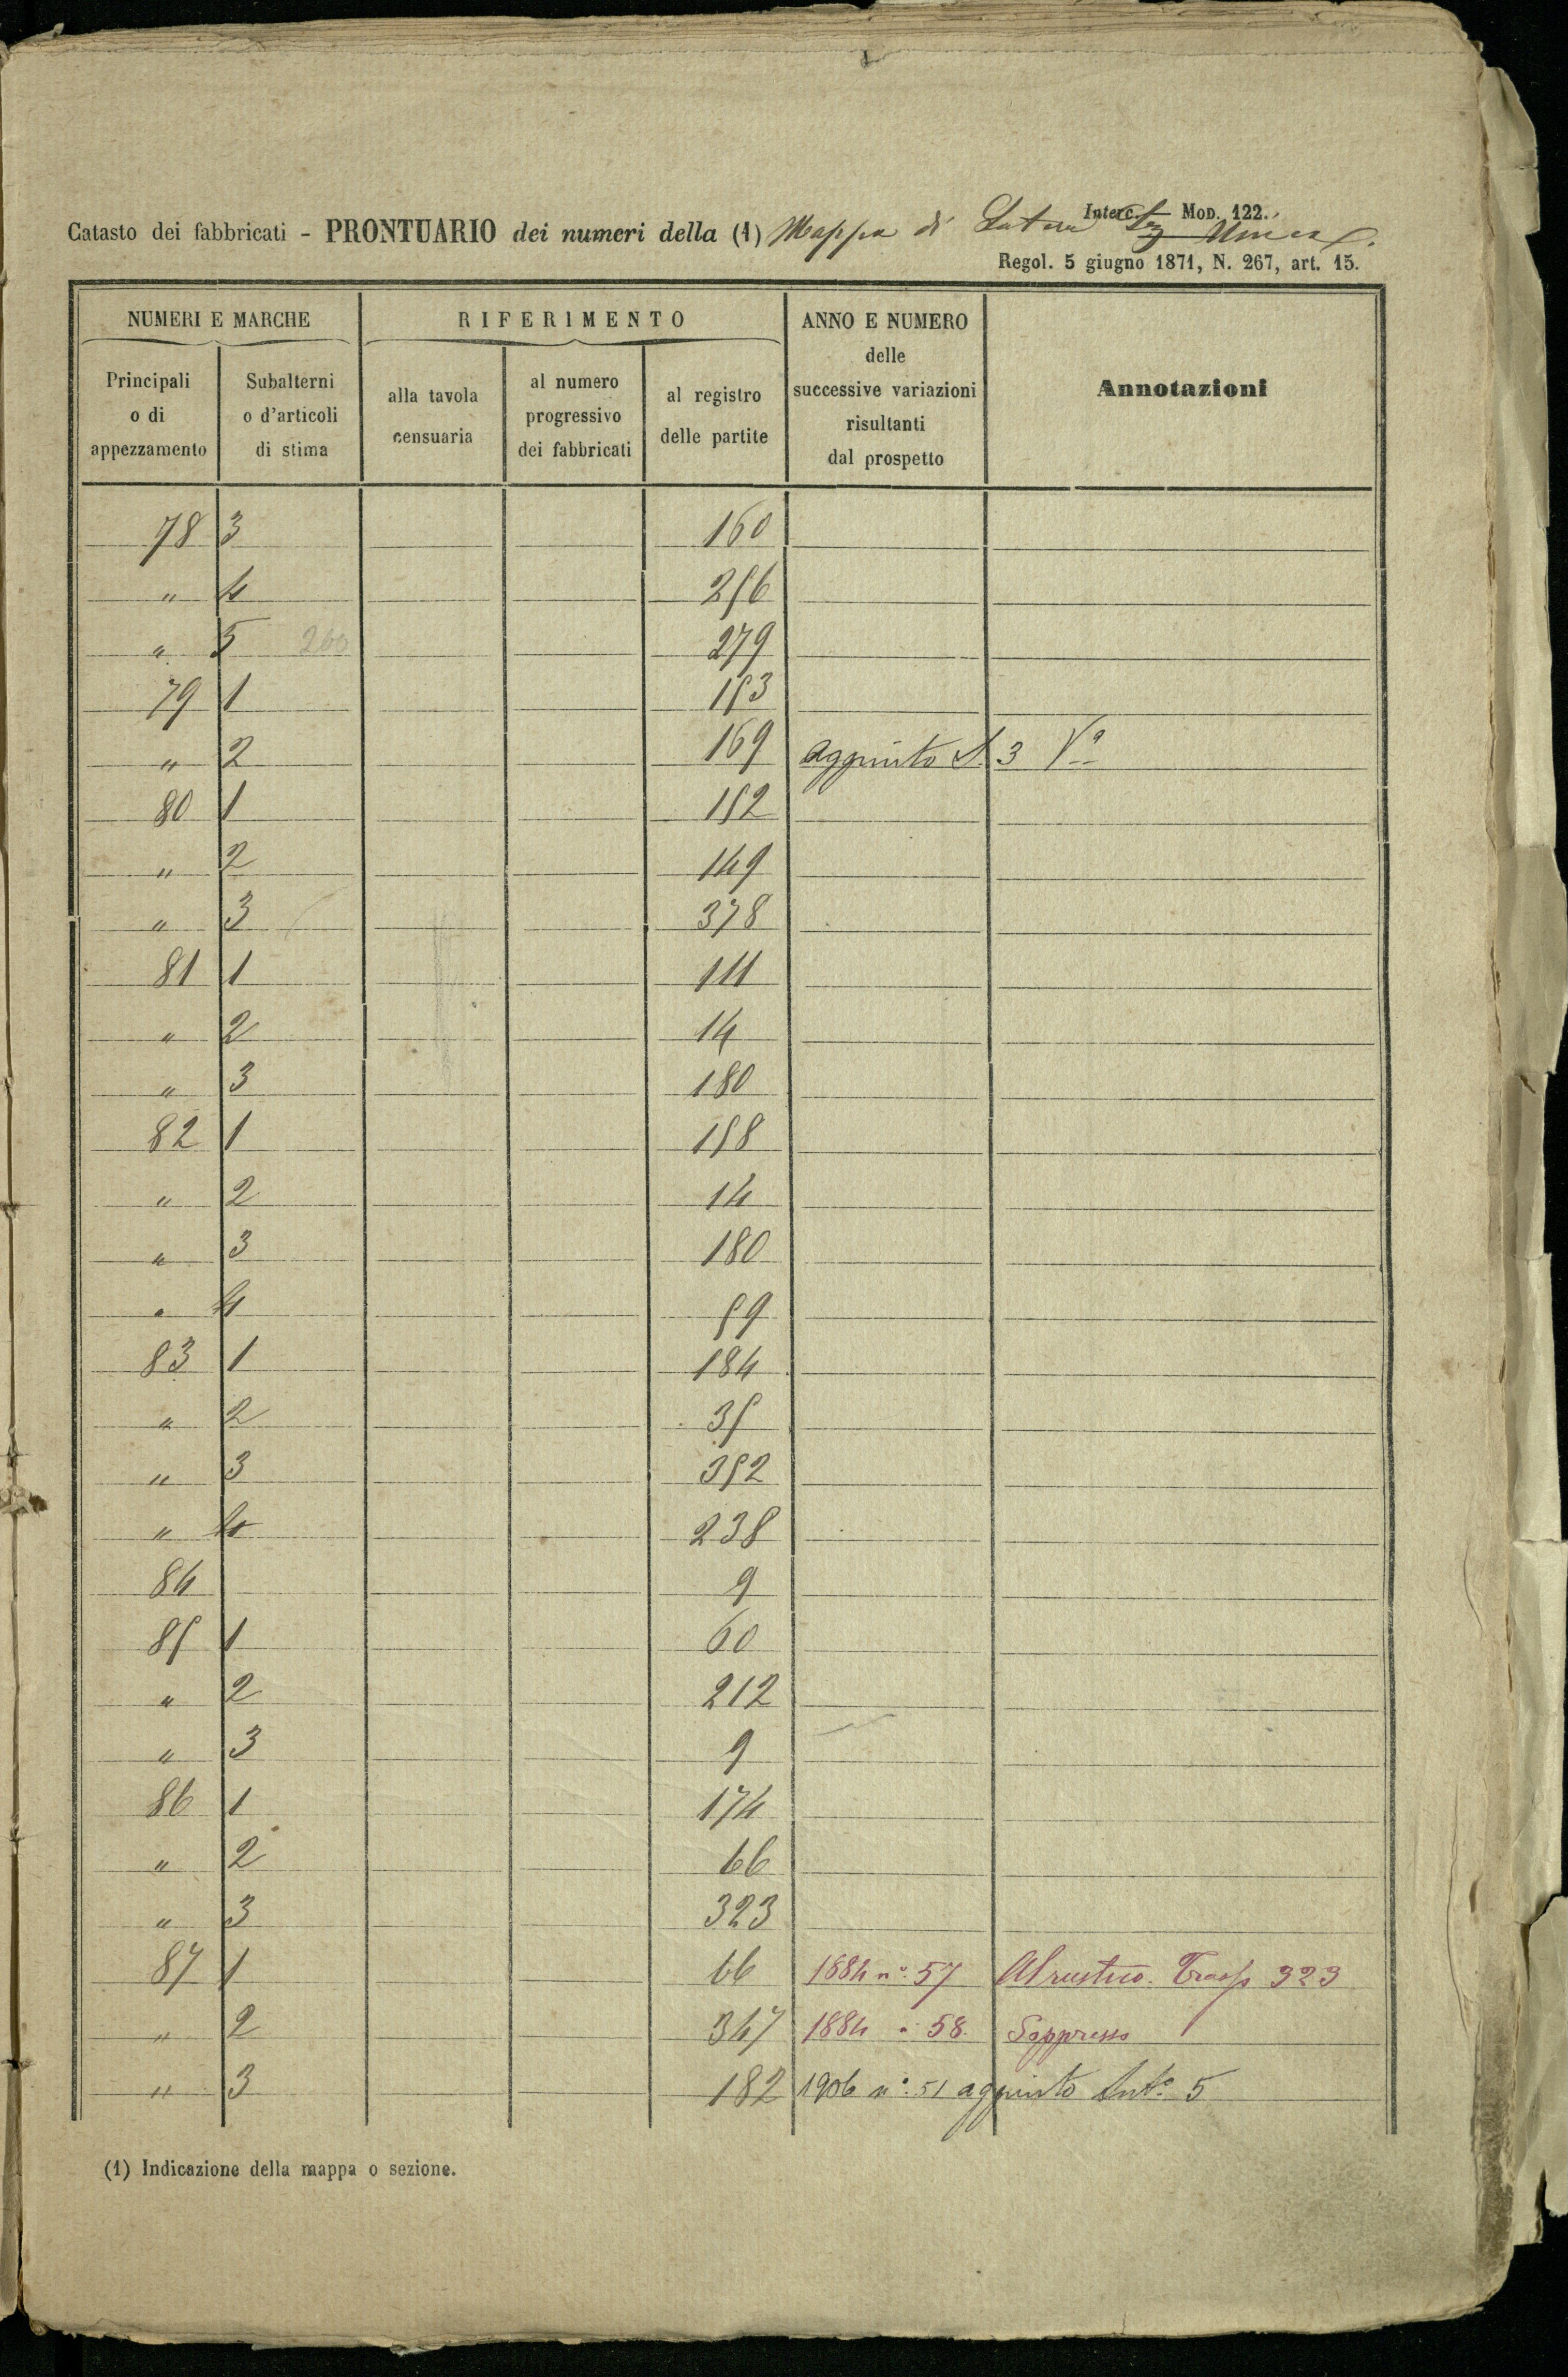 Interc. Mod. 122.
Catasto dei fabbricati - PRONTUARIO dei numeri della (1) Mappa di Latera Sez Unica
Regol. 5 giugno 1871, N. 267, art. 15.
NUMERI E MARCHE RIFERIMENTO ANNO E NUMERO delle successive variazioni risultanti dal prospetto Annotazioni
Principali o di appezzamento Subalterni o d'articoli di stima alla tavola censuaria al numero progressivo dei fabbricati al registro delle partite
78 3 160
" 4 256
" 5 260 279
79 1 153
" 2 169 Aggiunto S. 3 Va
80 1 152
" 2 149
" 3 378
81 1 111
" 2 14
" 3 180
82 1 158
" 2 14
" 3 180
" 4 59
83 1 184
" 2 35
" 3 352
" 4 238
84 9
85 1 60
" 2 212
" 3 9
86 1 174
" 2 66
" 3 323
87 1 66 1884 n°. 57 Al rustico. Trasp 323
" 2 347 1884 " 58. Soppresso
" 3 182 1906 n°. 51 aggiunto 5
(1) Indicazione della mappa o sezione.